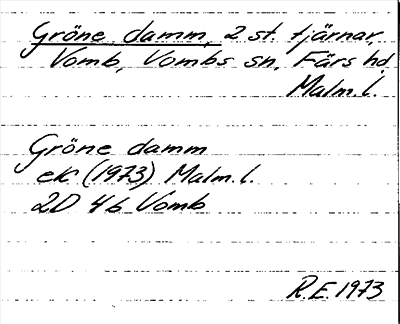 Gröne damm, 2 st. tjärnar,
Vomb, Vombs sn, Färs hd,
Malm.l.
Gröne damm
ek (1973) Malm.l.
2D 4b Vomb
R.E. 1973